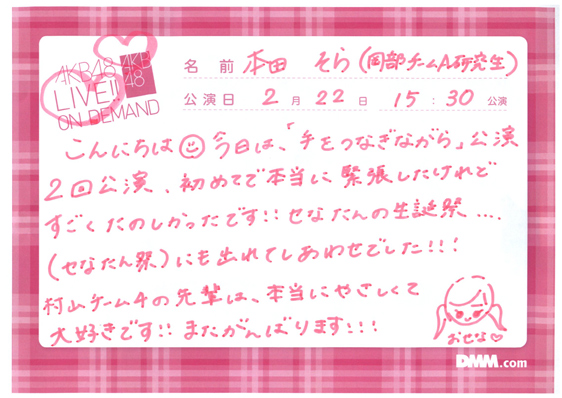 AKB48
LIVE!!
ON DEMAND
AKB
48
名前 本田 そら (岡部チームA研究生)
公演日 2月22日 15:30公演
こんにちは 今日は、「手をつなぎながら」公演
2回公演、初めてで本当に緊張したけれど
すごくたのしかったです!! せなたんの生誕祭....
(せなたん祭)にも出れてしあわせでした!!!
村山チーム4の先輩は、本当にやさしくて
大好きです!! またがんばります!!!
おせな♡
DMM.com